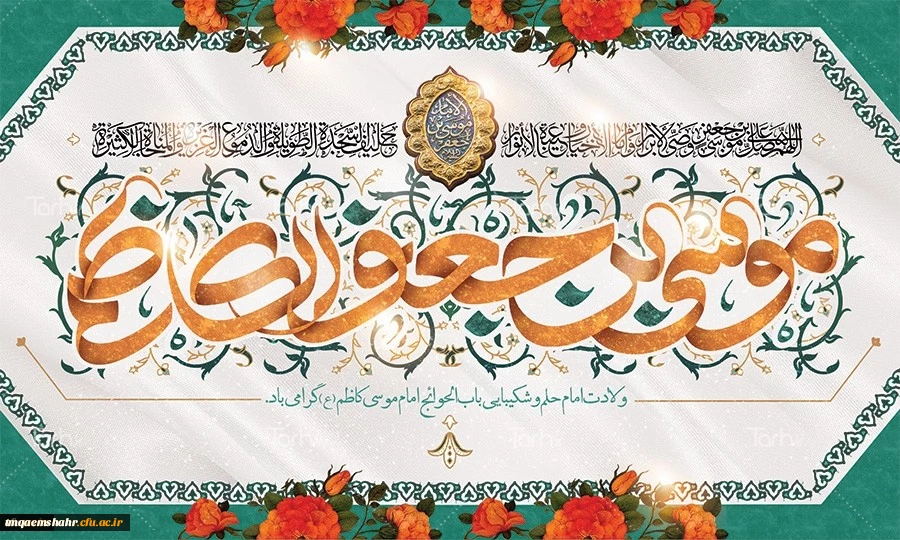 الامام
موسی بن
جعفر
اللهم صل علی موسی بن جعفر وصی الابرار و امام الاخیار و عیبة الانوار
حلیف السجدة الطویلة و الدموع الغزیرة و المناجاة الکثیرة
موسی بن جعفر الکاظم
ولادت امام حلم و شکیبایی باب الحوائج امام موسی کاظم (ع) گرامی باد.
Tarhi
mqaemshahr.cfu.ac.ir